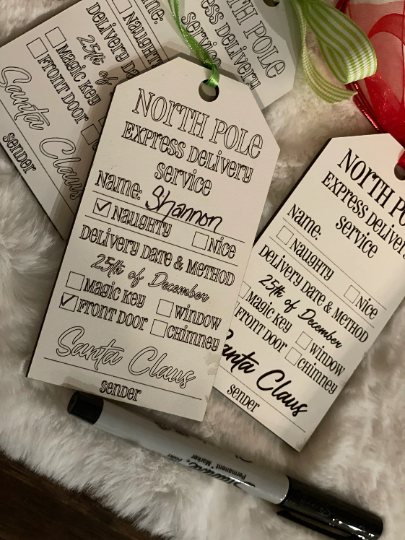 NORTH POLE
EXPRESS DELIVERY
SERVICE
Name: Shannon
☑ NAUGHTY ☐ NICE
DELIVERY DATE & METHOD
25th of December
☐ MAGIC KEY ☐ WINDOW
☑ FRONT DOOR ☐ CHIMNEY
Santa Claus
sender
NORTH POLE
EXPRESS DELIVERY
SERVICE
NAUGHTY
DELIVERY DATE &
25th of
MAGIC KEY
FRONT DOOR
Santa Claus
sender
NORTH P
EXPRESS DELIVERY
SERVICE
Name:
☐ NAUGHTY ☐ NICE
DELIVERY DATE & METHOD
25th of December
MAGIC KEY ☐ WINDOW
FRONT DOOR ☐ CHIMNEY
Santa Claus
sender
Permanent Marker